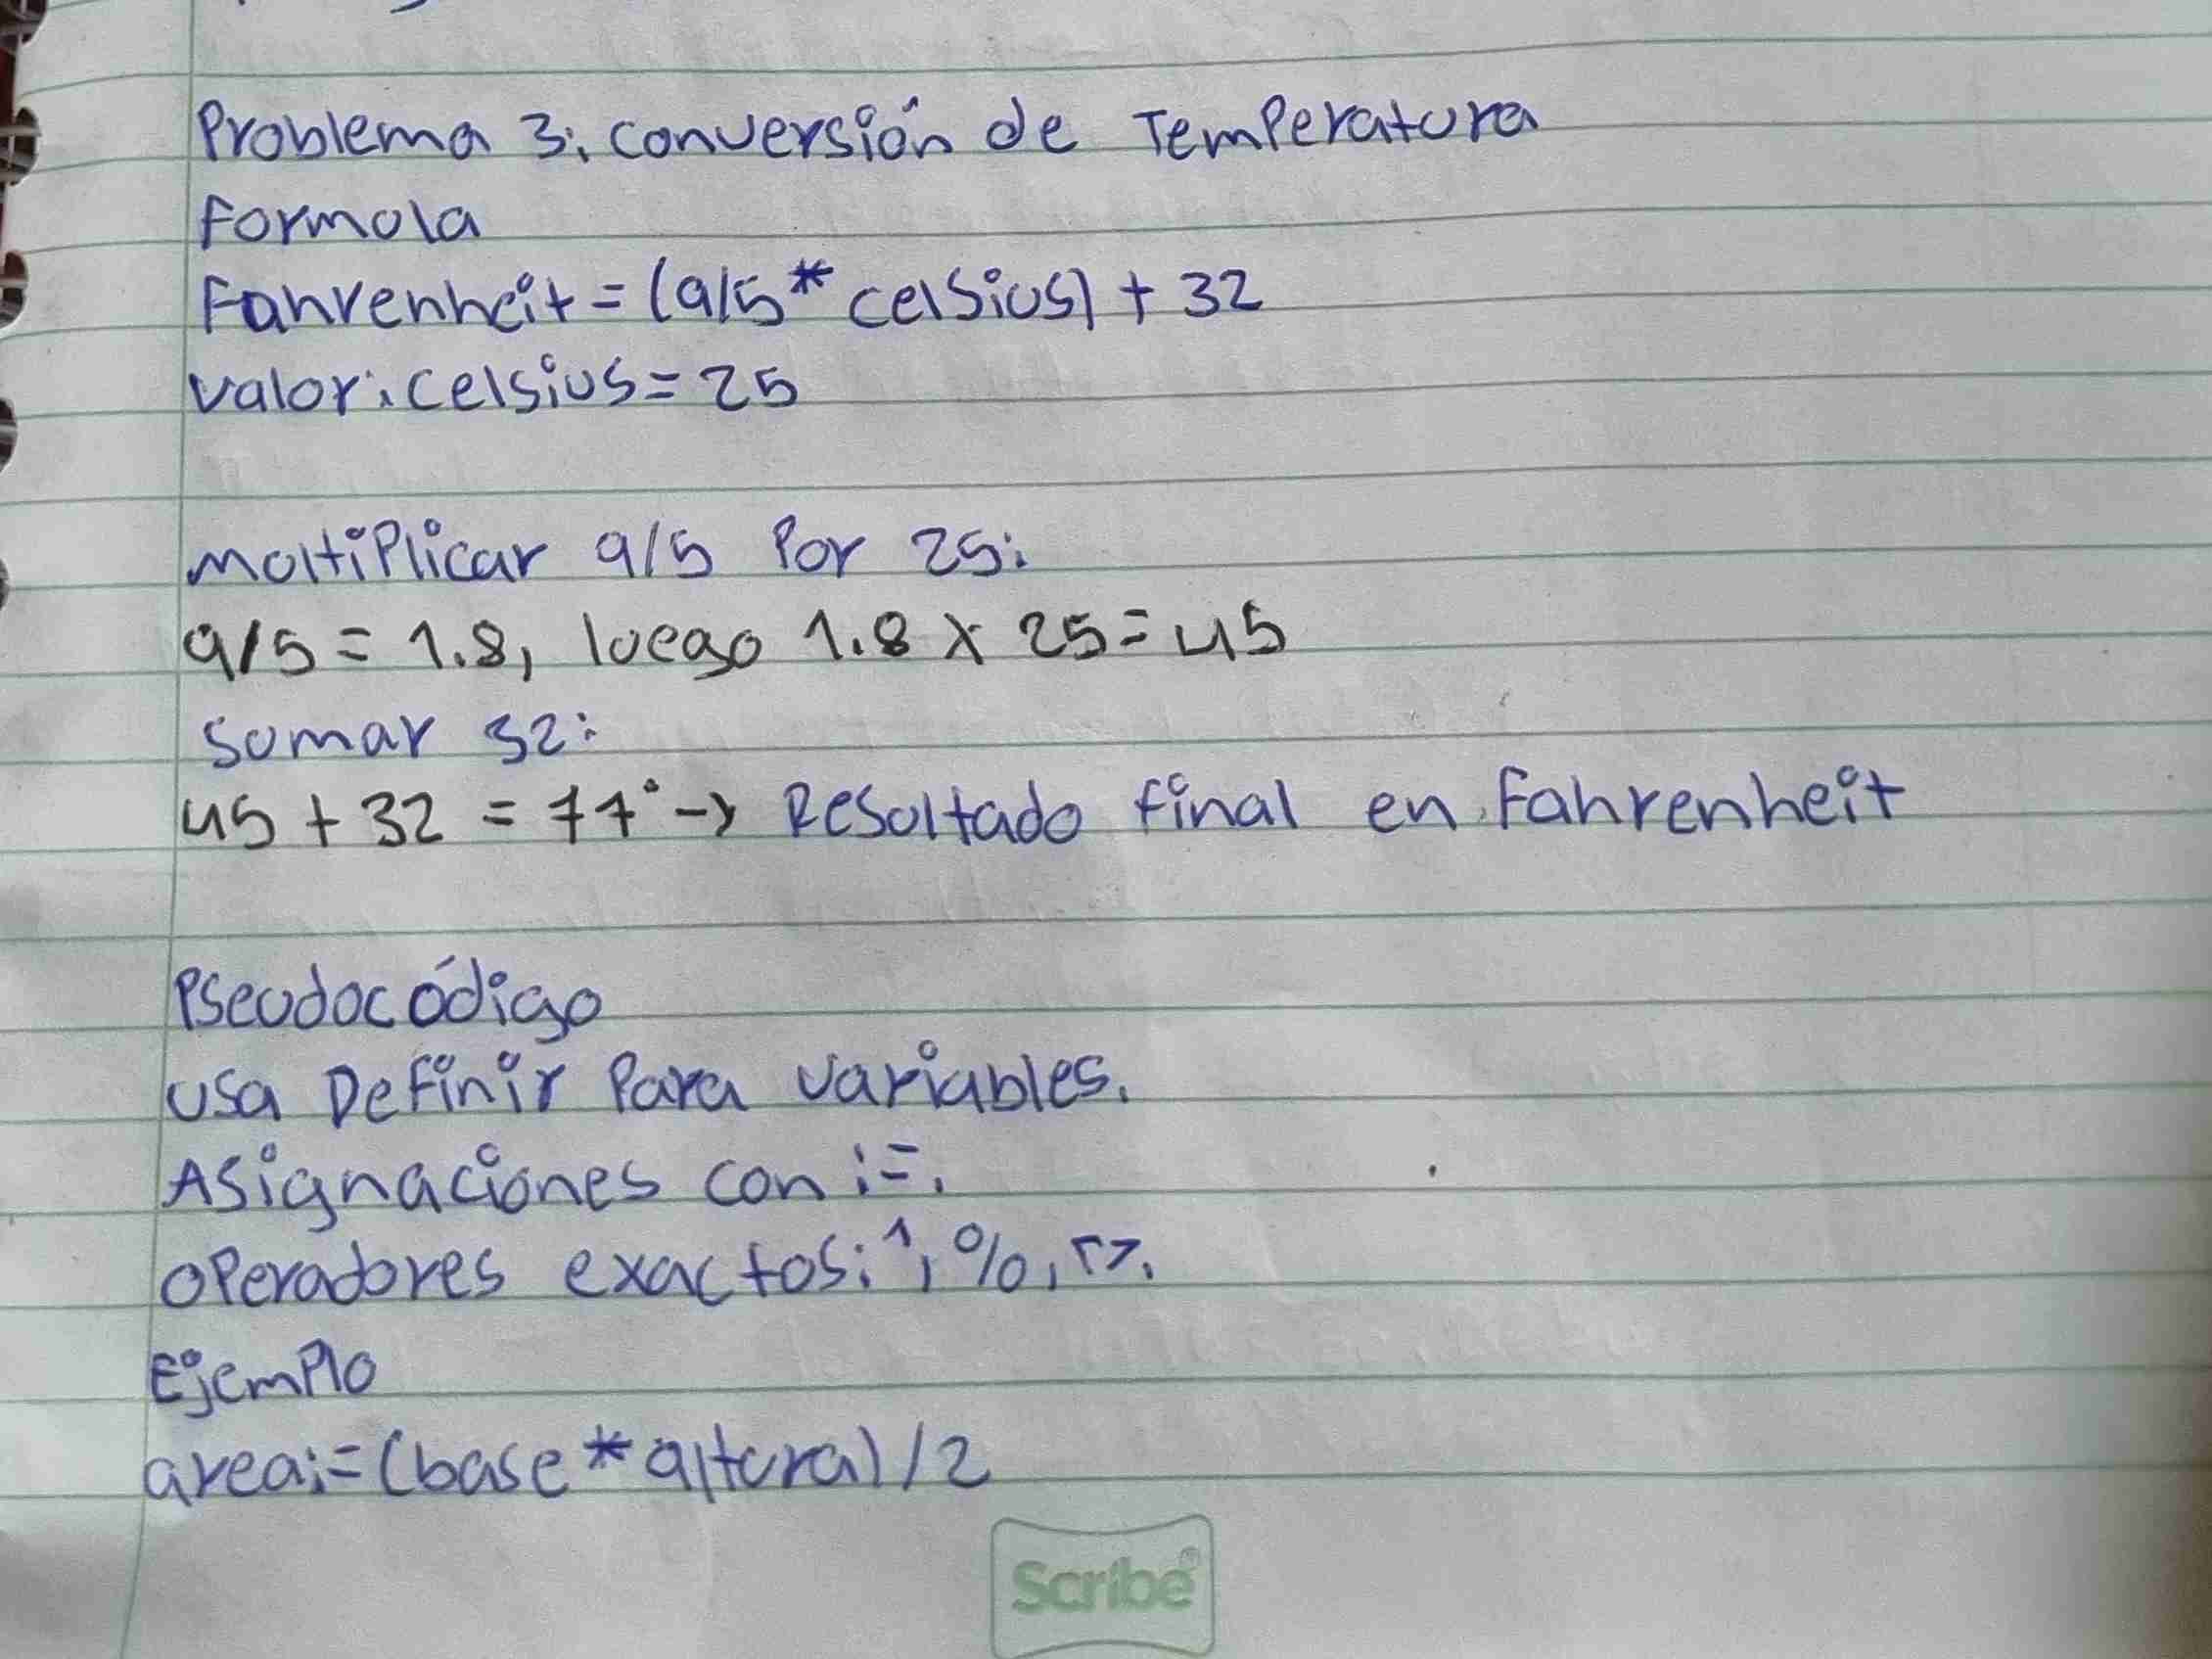 Problema 3: conversión de Temperatura
Formula
Fahrenheit = (9/5 * celsius) + 32
valor: celsius = 25
multiplicar 9/5 por 25:
9/5 = 1.8, luego 1.8 x 25 = 45
sumar 32:
45 + 32 = 77° → Resultado final en Fahrenheit
Pseudocódigo
usa Definir Para variables.
Asignaciones con :=.
operadores exactos: ^, %, <>.
Ejemplo
area:= (base * altura) / 2
Scribe®